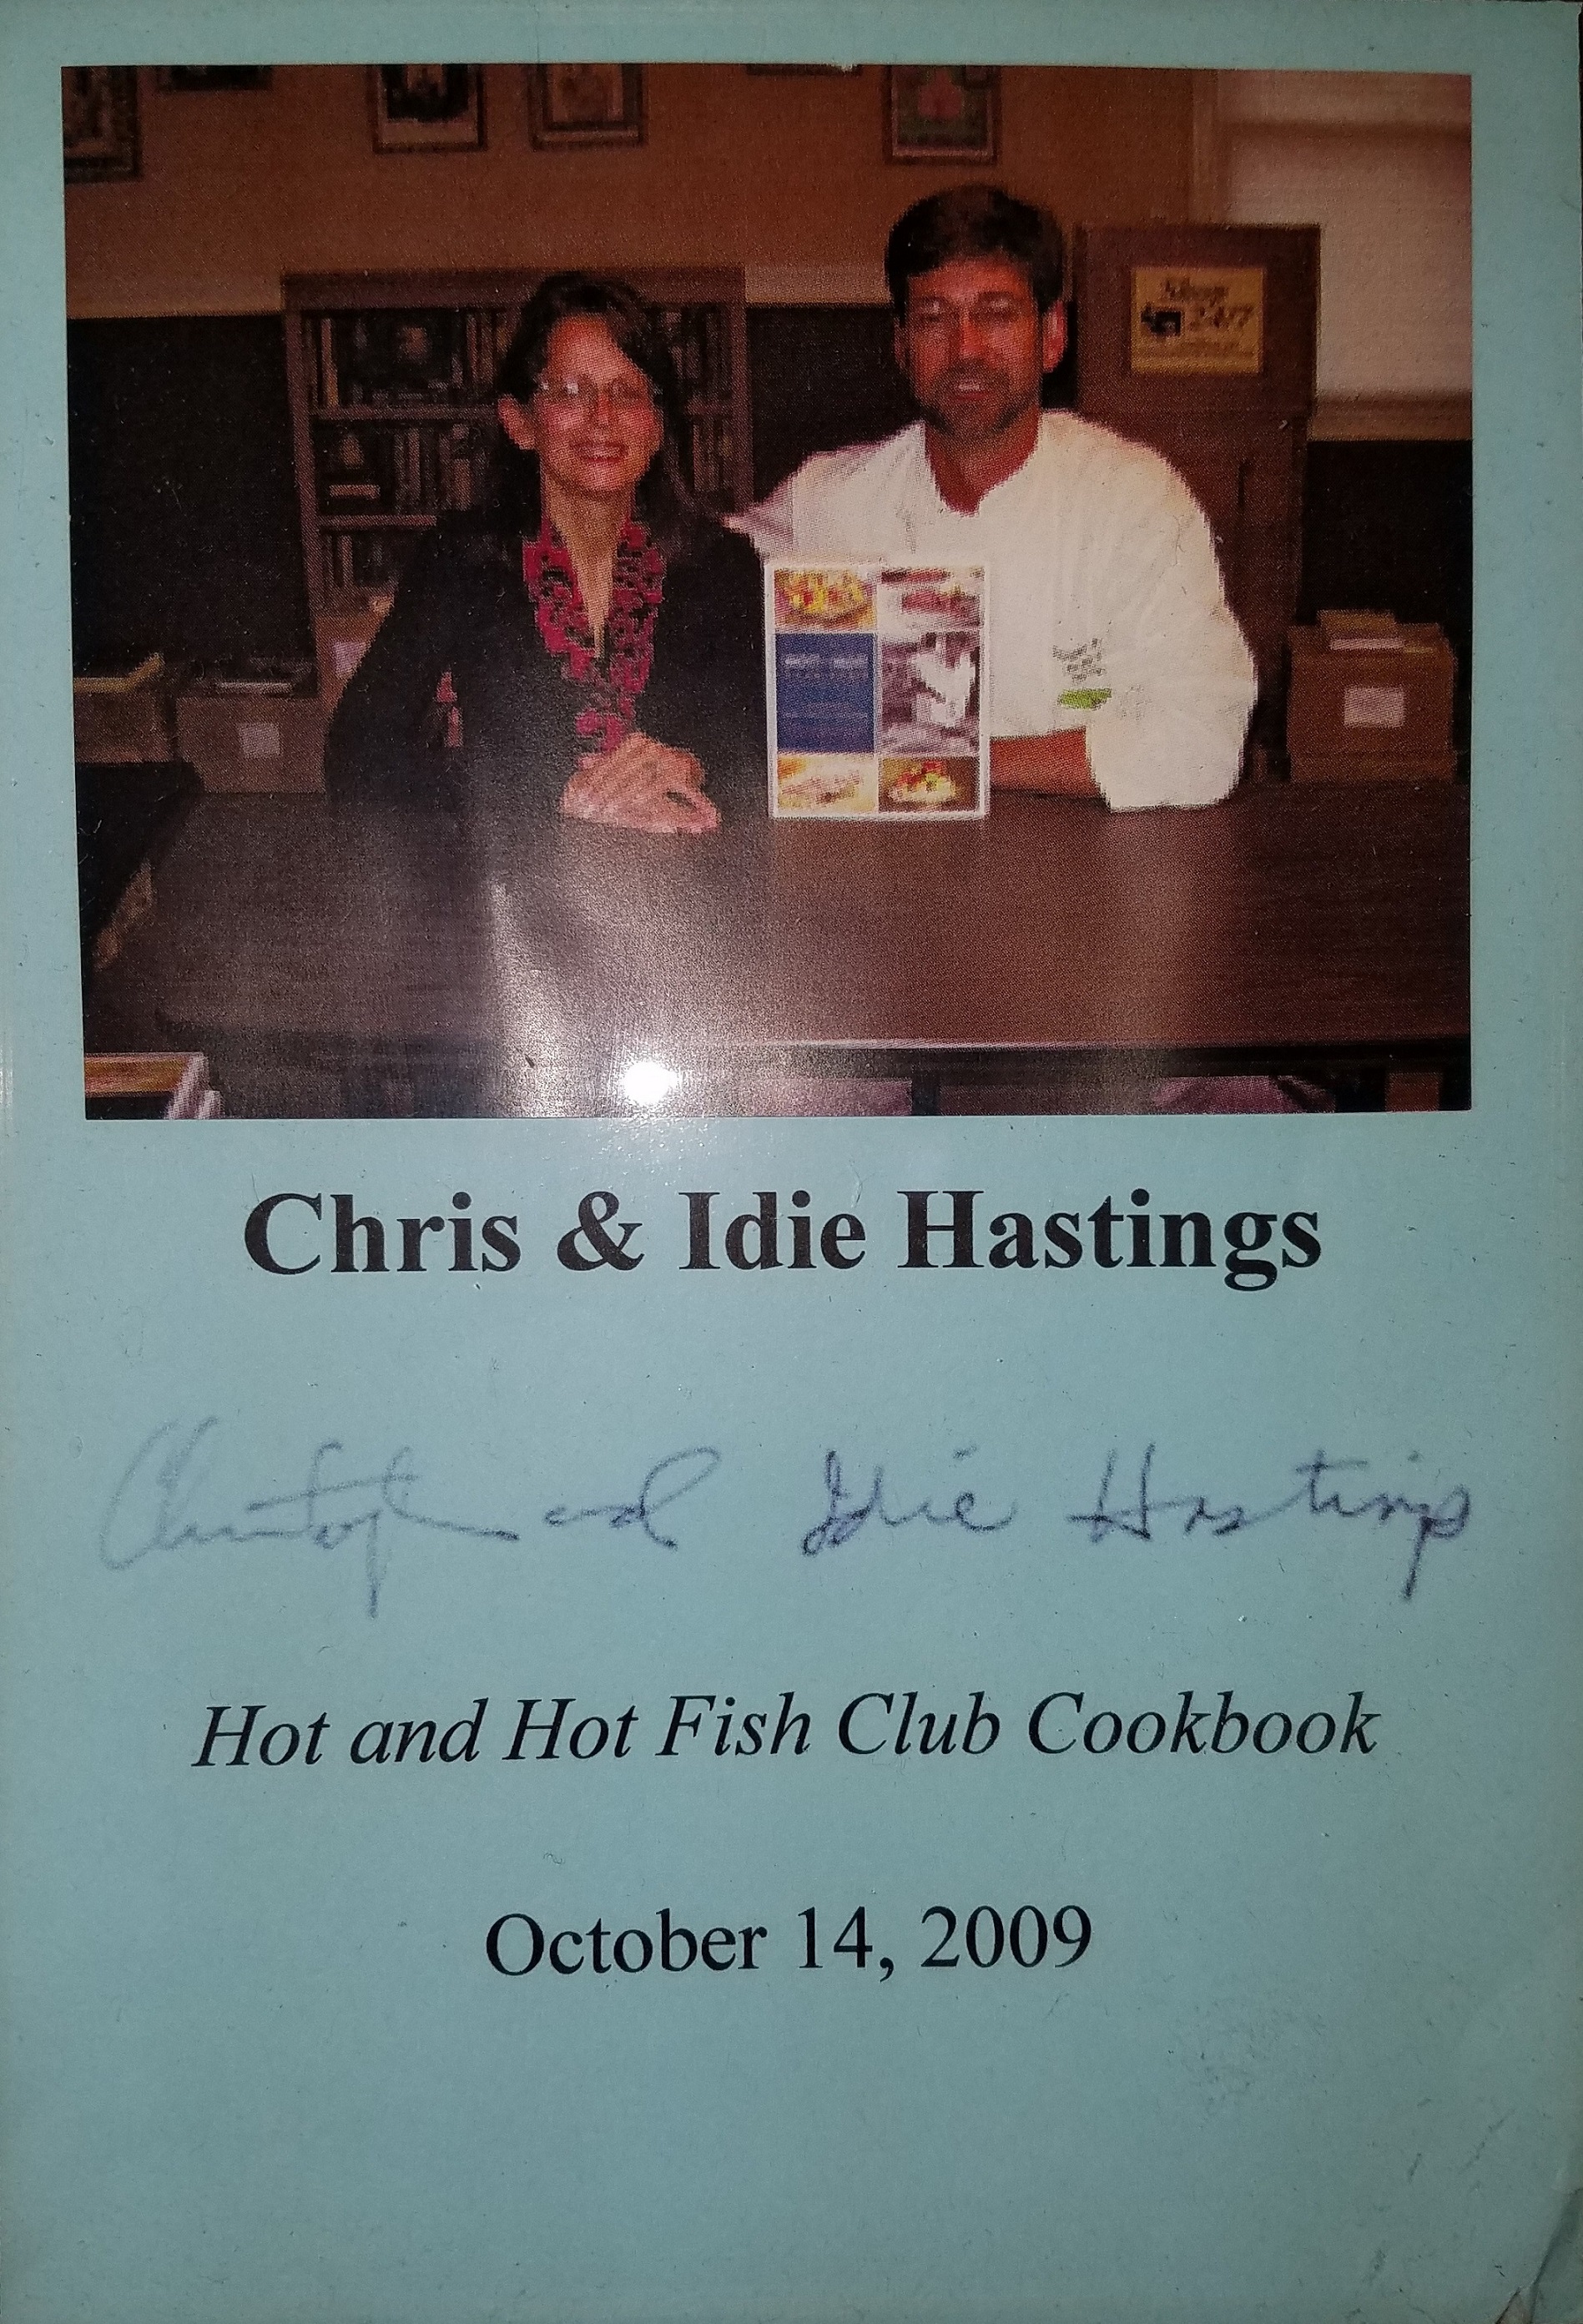 Shop
24/7
Chris & Idie Hastings
Christopher and Idie Hastings
Hot and Hot Fish Club Cookbook
October 14, 2009